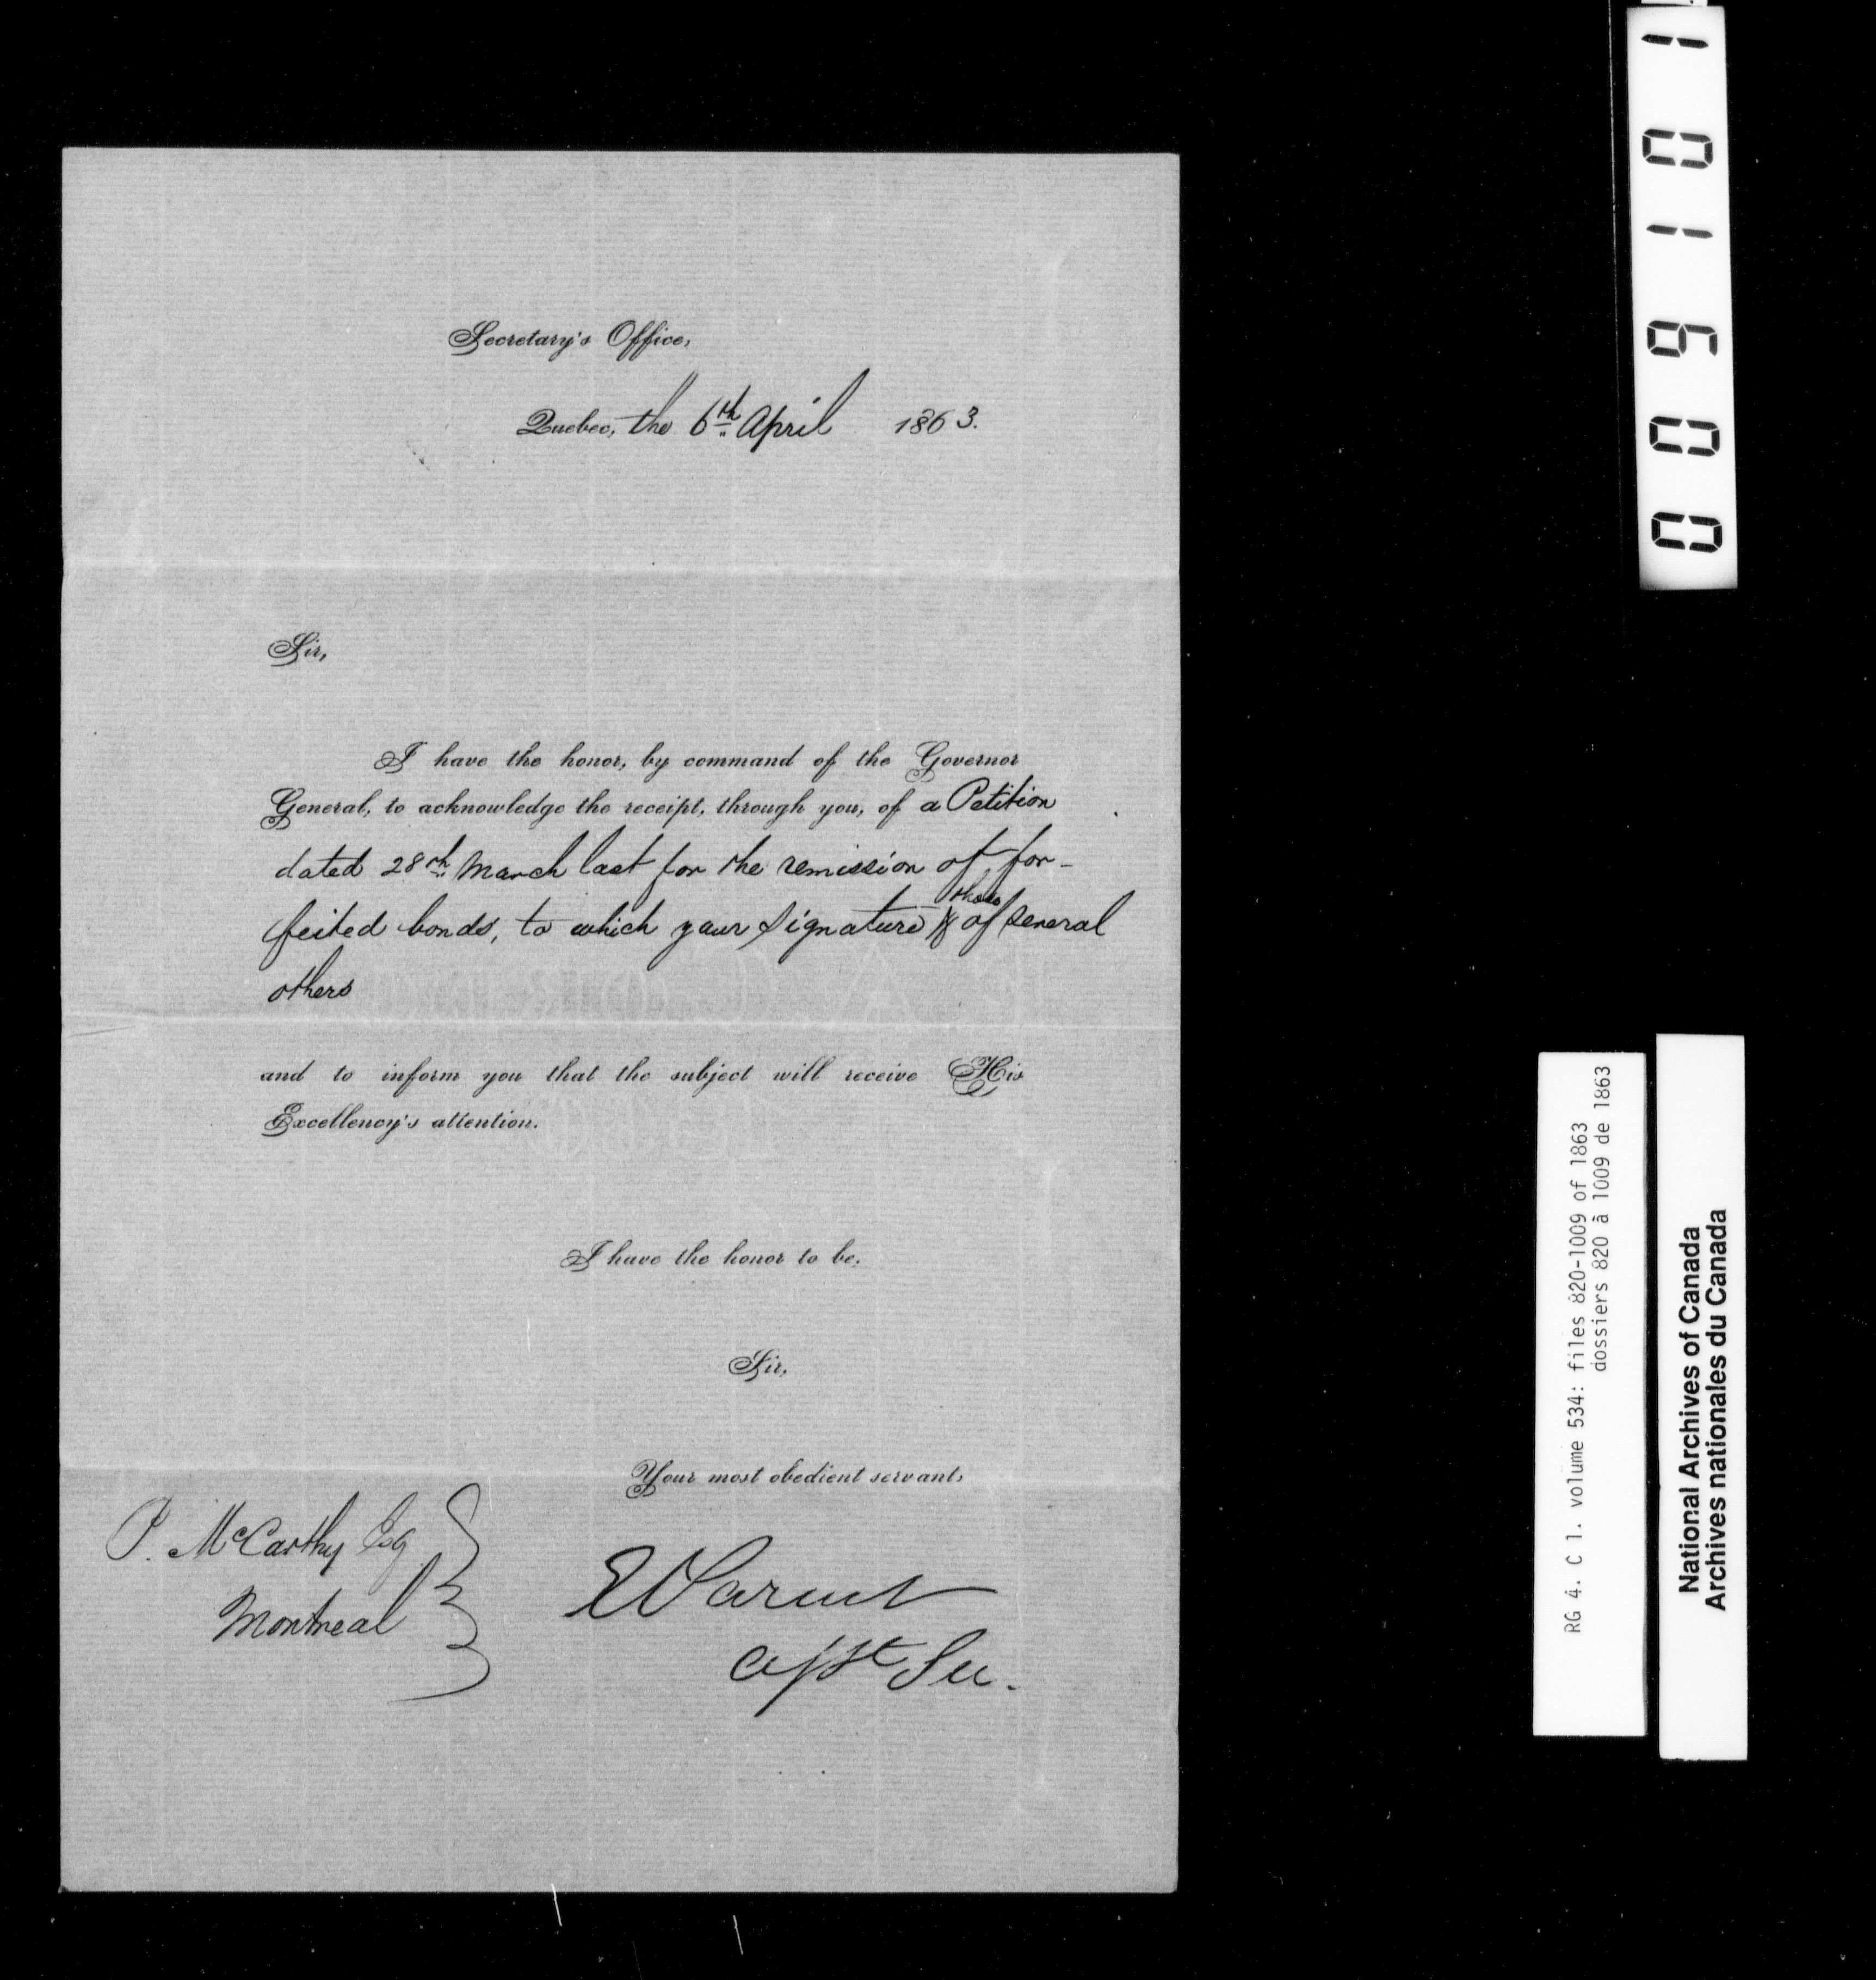 Secretary's Office,
Quebec, the 6th April 1863.
Sir,
I have the honor, by command of the Governor
General, to acknowledge the receipt, through you, of a Petition
dated 28th March last for the remission of for-
feited bonds, to which your signature & those of several
others
and to inform you that the subject will receive His
Excellency's attention.
I have the honor to be,
Sir,
Your most obedient servant,
P. McCarthy Esq
Montreal
E Parent
Asst Sec.
001601
RG 4. C 1. volume 534: files 820-1009 of 1863
dossiers 820 à 1009 de 1863
National Archives of Canada
Archives nationales du Canada